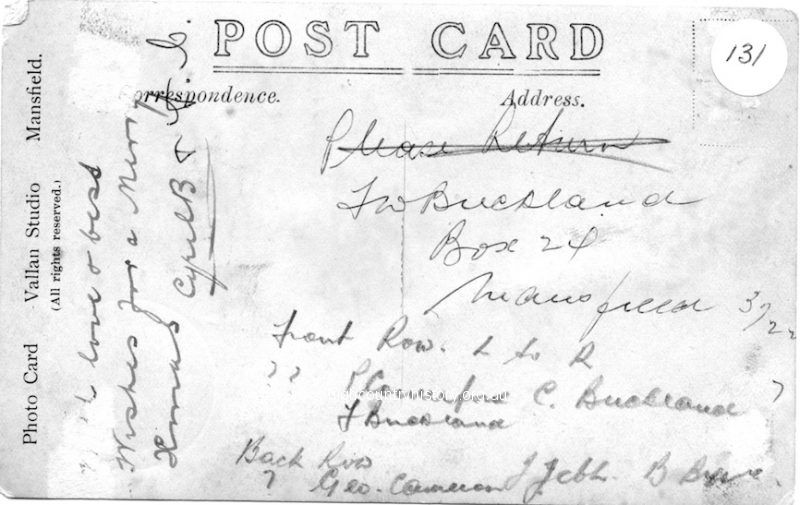 POST CARD
131
Correspondence.
Address.
Photo Card Vallan Studio Mansfield.
(All rights reserved.)
love & best
Wishes for a Merry
Xmas Cyril B &
Please Return
F W Buckland
Box 24
Mansfield 3722
Front Row. L to R
? ? C. Buckland ?
F Buckland
Back Row
? Geo. Cameron J Jebb. B
countryhistory.org.au